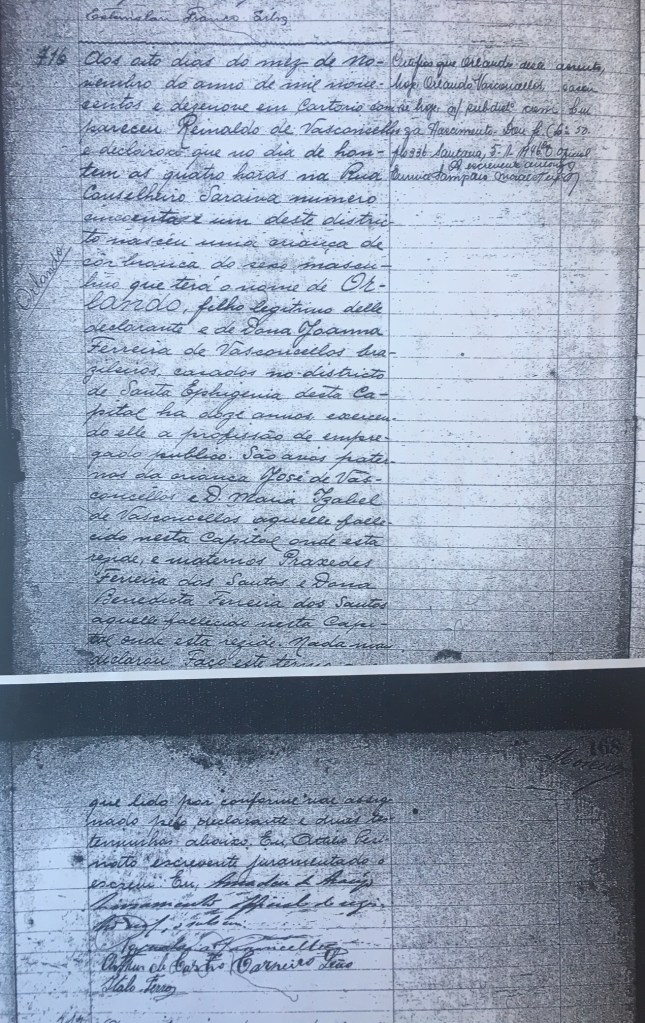 Estanislau Franco
716
Aos oito dias do mez de No-
vembro do anno de mil nove-
centos e dezenove em Cartorio com-
pareceu Reinaldo de Vasconcellos
e declarou que no dia de hon-
tem as quatro horas na Rua
Conselheiro Saraiva numero
cincoenta e um deste distric-
to nasceu uma criança de
côr branca do sexo mascu-
lino que terá o nome de Or-
lando, filho legitimo delle
declarante e de Dona Joanna
Ferreira de Vasconcellos bra-
zileiros, casados no districto
de Santa Ephigenia desta Ca-
pital ha doze annos exercen-
do elle a profissão de empre-
gado publico. São avos pater-
nos da criança José de Vas-
concellos e D. Maria Izabel
de Vasconcellos aquelle falle-
cido nesta Capital onde esta
reside, e maternos Praxedes
Ferreira dos Santos e Dona
Benedicta Ferreira dos Santos
aquelle fallecido nesta Capi-
tal onde esta reside. Nada mais
declarou. Faço este termo
Orlando
Certifico que Orlando deste assento,
hoje Orlando Vasconcellos, casou
se hoje n/ subdist. com
Nascimento. Dou fé.
Santana, O official
O escrevente
Sampaio
168
que lido por conforme vae assig-
nado pelo declarante e duas tes-
temunhas abaixo. Eu,
escrevente juramentado o
escrevi. Eu, Amadeu de Araujo
official do regis-
Vasconcellos
Arthur de Castro Carneiro Leão
Italo